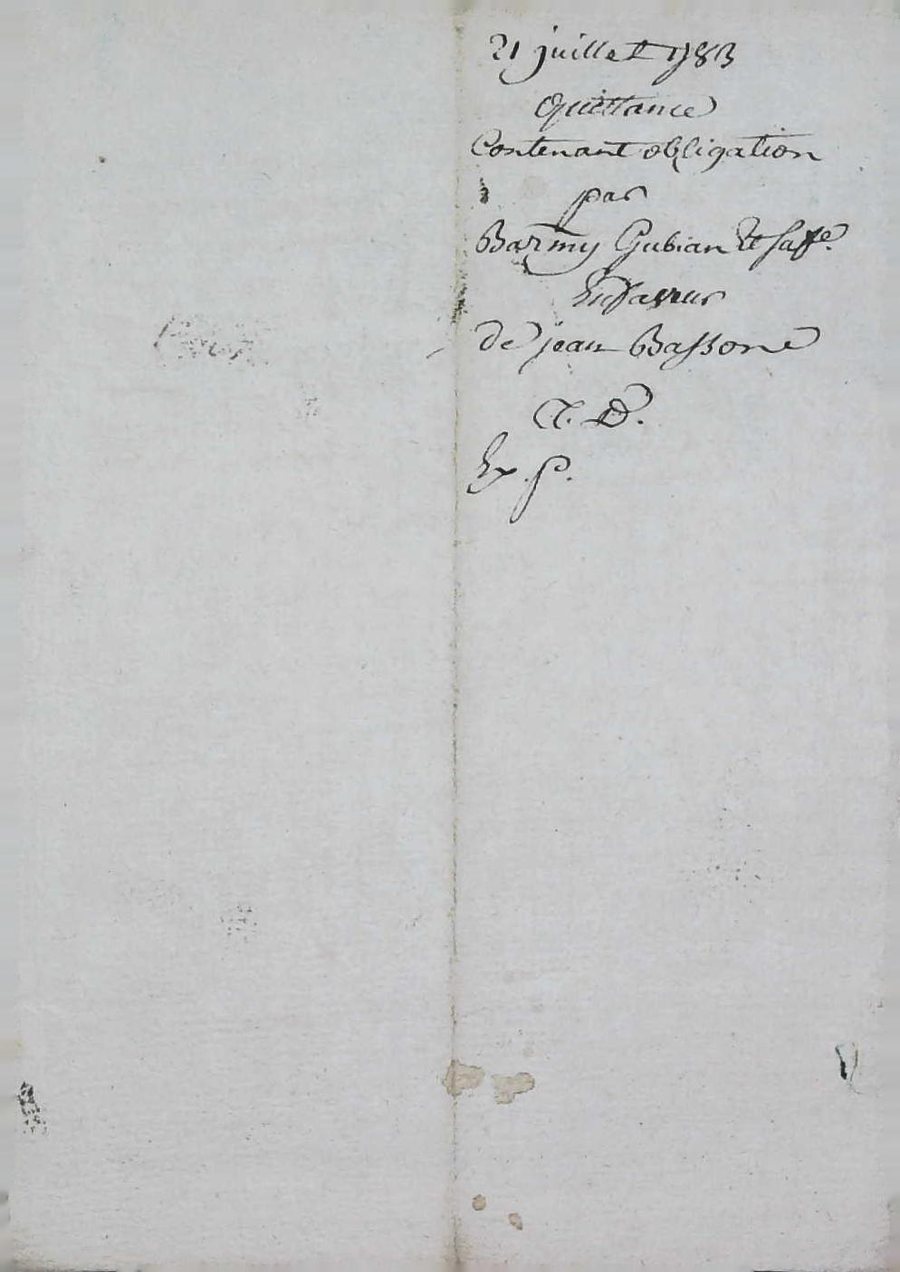 21 juillet 1783
Quittance
Contenant obligation
par
Barmy Gubian et sa ffe.
En faveur
de jean Bassone
Ex. p.